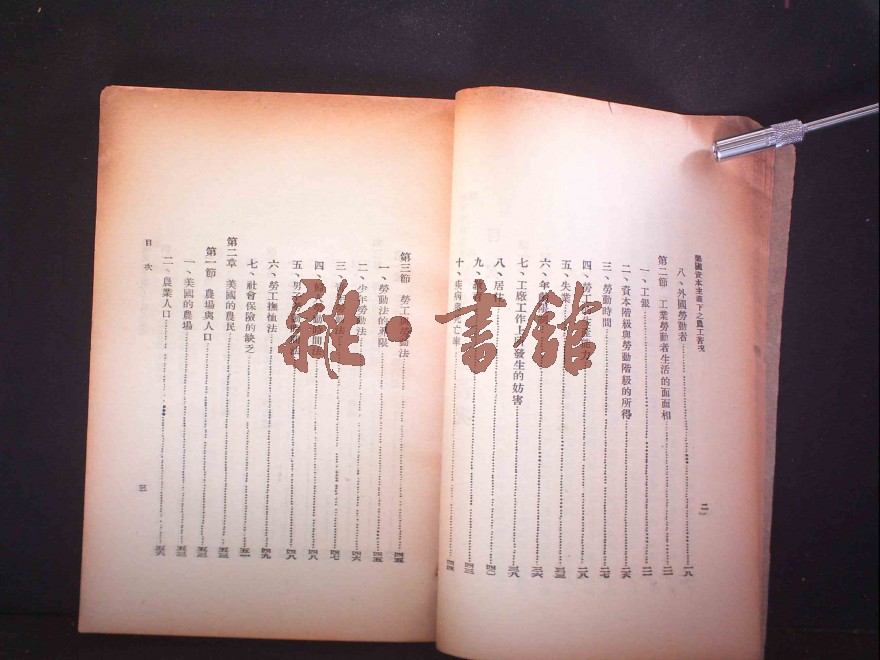 美國資本主義下之農工苦況
二
八、外國勞動者……一八
第二節 工業勞動者生活的面面相……二一
一、工銀……二一
二、資本階級與勞動階級的所得……二六
三、勞動時間……二七
四、勞……力……二八
五、失業……三三
六、年……三六
七、工廠工作上發生的妨害……三八
八、居住……四〇
九、教育……四三
十、疾病與死亡率……四四
第三節 勞工與勞働法……四五
一、勞動法的界限……四五
二、少年勞動法……四六
三、……法……四七
四、婦……動時間法……四八
五、男子勞……法……四八
六、勞工撫恤法……四九
七、社會保險的缺乏……五一
第二章 美國的農民……五三
第一節 農場與人口……五三
一、美國的農場……五三
二、農業人口……五六
目次
三
雜·書館